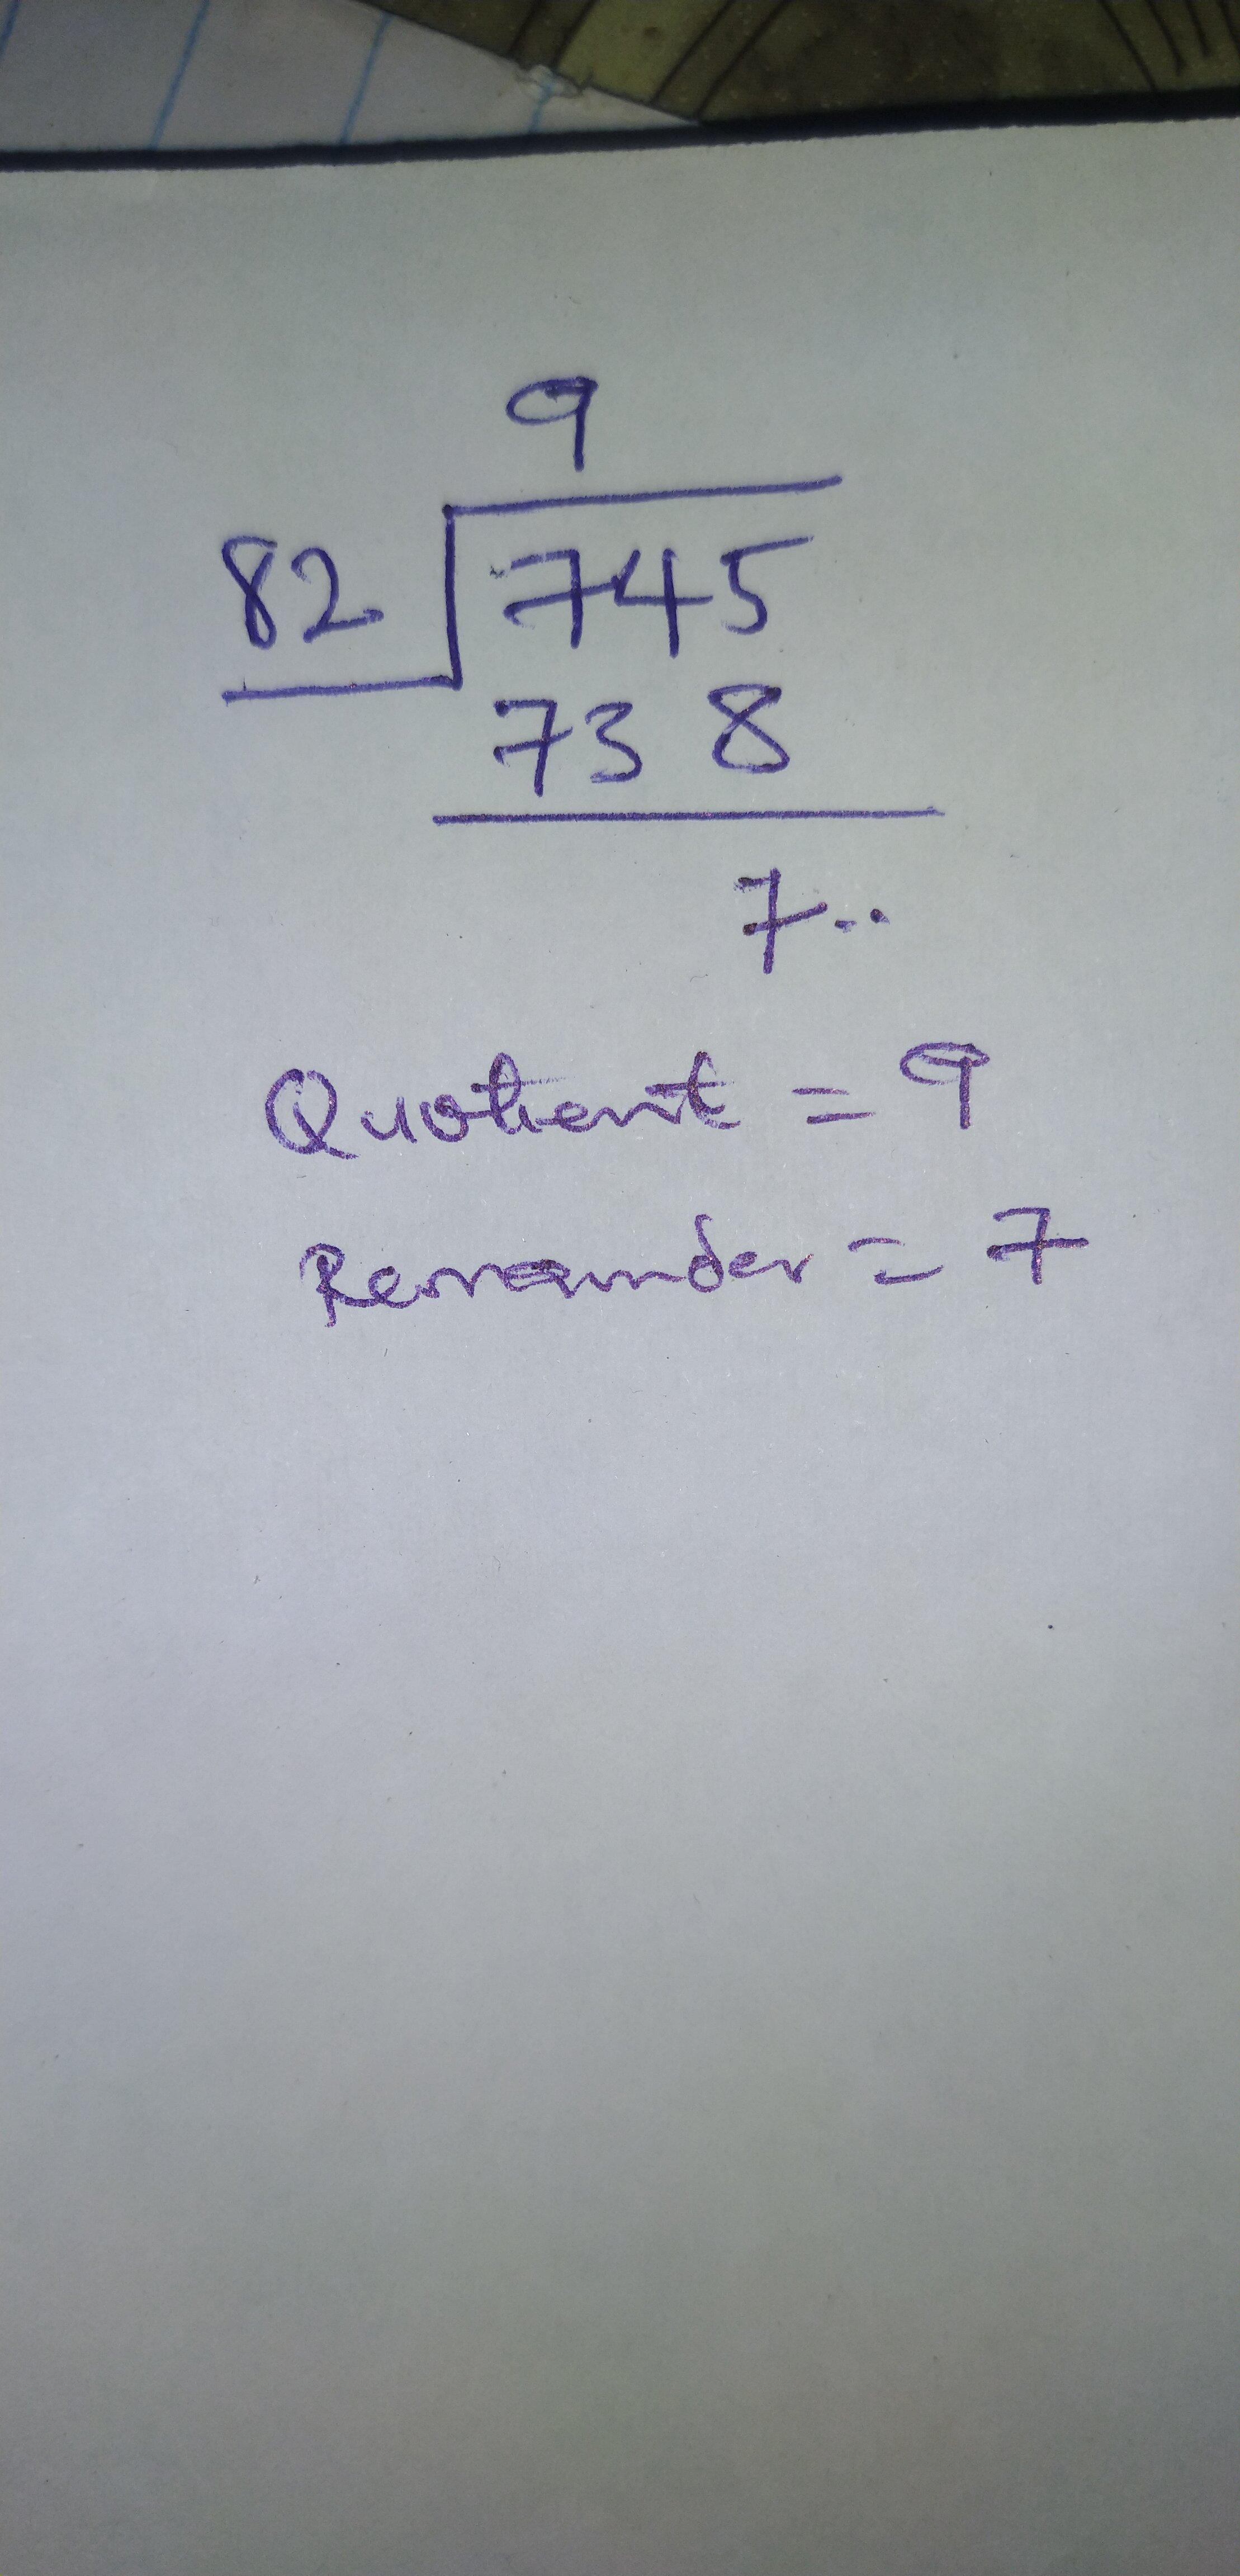 9
82 745
73 8
7..
Quotient = 9
Remainder = 7